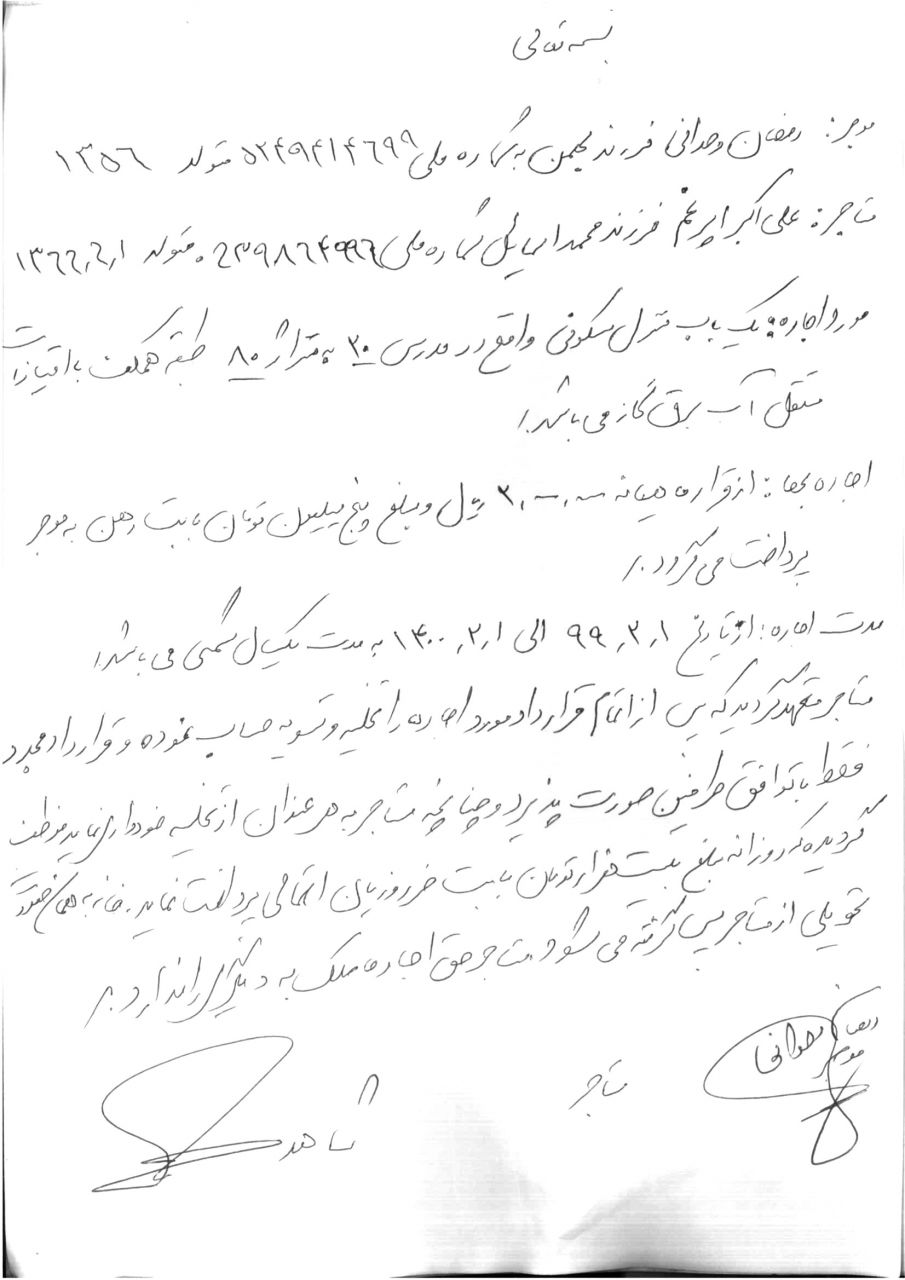 بسمه تعالی
موجر: رمضان وحدانی فرزند بهمن به شماره ملی ۵۲۴۹۴۱۴۶۹۹ متولد ۱۳۵۶
مستاجر: علی اکبر فرزند محمد اسماعیل شماره ملی متولد ۱۳۶۶,۶,۱
مورد اجاره: یک باب منزل مسکونی واقع در مدرس ۲۰ به متراژ ۸۰ طبقه همکف با امتیازات
مستقل آب برق گاز می باشد.
اجاره بها: از قرار ماهیانه ریال و مبلغ پنج میلیون تومان بابت رهن به موجر
پرداخت می گردد.
مدت اجاره: از تاریخ ۹۹,۲,۱ الی ۱۴۰۰,۲,۱ به مدت یکسال شمسی می باشد.
مستاجر متعهد گردید که پس از اتمام قرارداد مورد اجاره را تخلیه و تسویه حساب نموده و قرارداد مجدد
فقط با توافق طرفین صورت پذیرد و چنانچه مستاجر به هر عنوان از تخلیه خودداری نماید موظف
گردیده که روزانه مبلغ بیست هزار تومان بابت ضرر و زیان احتمالی پرداخت نماید. خانه به همان صورت
تحویلی از مستاجر پس گرفته می شود. مستاجر حق اجاره ملک به دیگری را ندارد.
رمضان وحدانی
موجر
مستاجر
شاهد